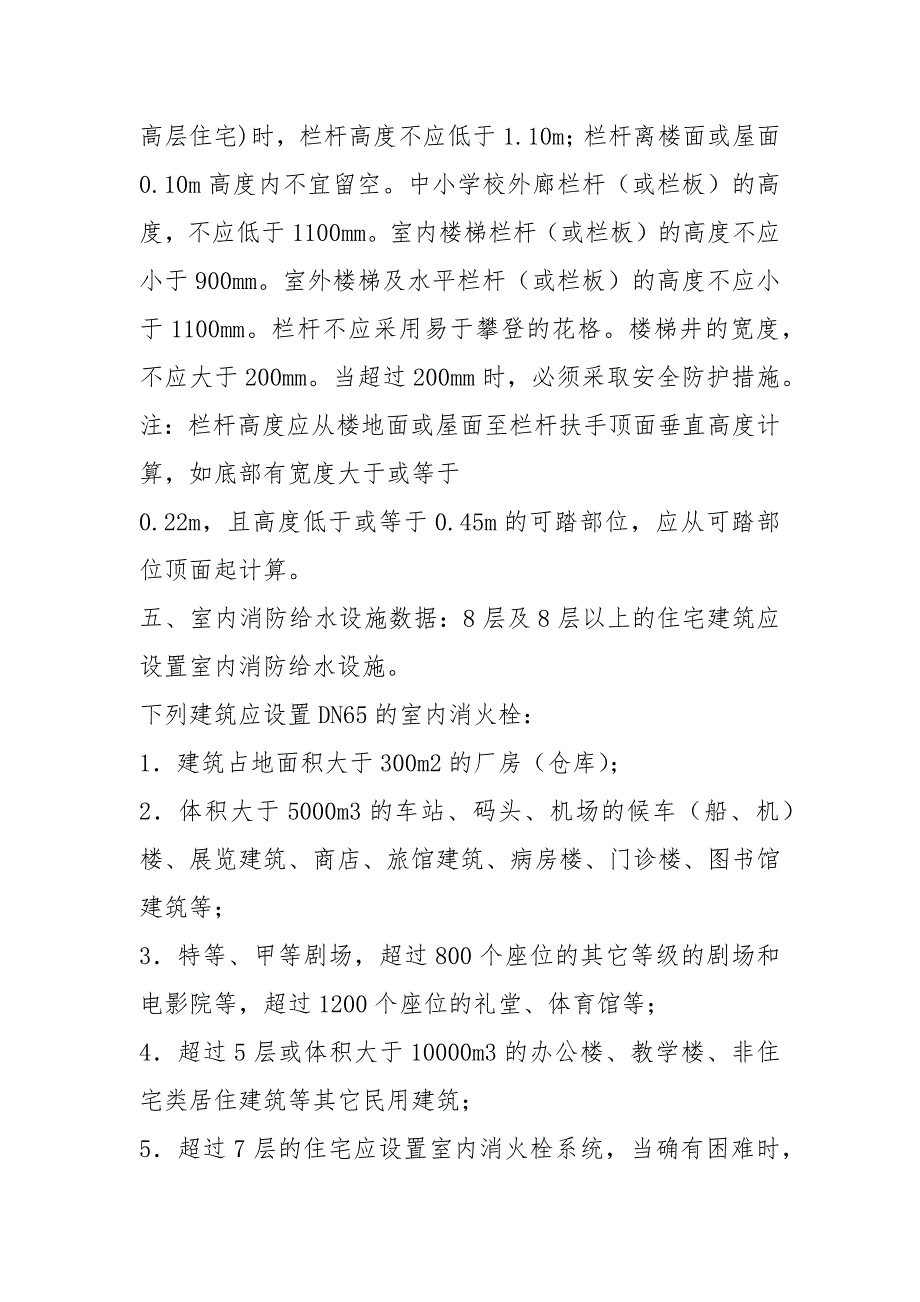 高层住宅)时，栏杆高度不应低于1.10m；栏杆离楼面或屋面
0.10m高度内不宜留空。中小学校外廊栏杆（或栏板）的高
度，不应低于1100mm。室内楼梯栏杆（或栏板）的高度不应
小于900mm。室外楼梯及水平栏杆（或栏板）的高度不应小
于1100mm。栏杆不应采用易于攀登的花格。楼梯井的宽度，
不应大于200mm。当超过200mm时，必须采取安全防护措施。
注：栏杆高度应从楼地面或屋面至栏杆扶手顶面垂直高度计
算，如底部有宽度大于或等于
0.22m，且高度低于或等于0.45m的可踏部位，应从可踏部
位顶面起计算。
五、室内消防给水设施数据：8层及8层以上的住宅建筑应
设置室内消防给水设施。
下列建筑应设置DN65的室内消火栓：
1．建筑占地面积大于300m2的厂房（仓库）；
2．体积大于5000m3的车站、码头、机场的候车（船、机）
楼、展览建筑、商店、旅馆建筑、病房楼、门诊楼、图书馆
建筑等；
3．特等、甲等剧场，超过800个座位的其它等级的剧场和
电影院等，超过1200个座位的礼堂、体育馆等；
4．超过5层或体积大于10000m3的办公楼、教学楼、非住
宅类居住建筑等其它民用建筑；
5．超过7层的住宅应设置室内消火栓系统，当确有困难时，